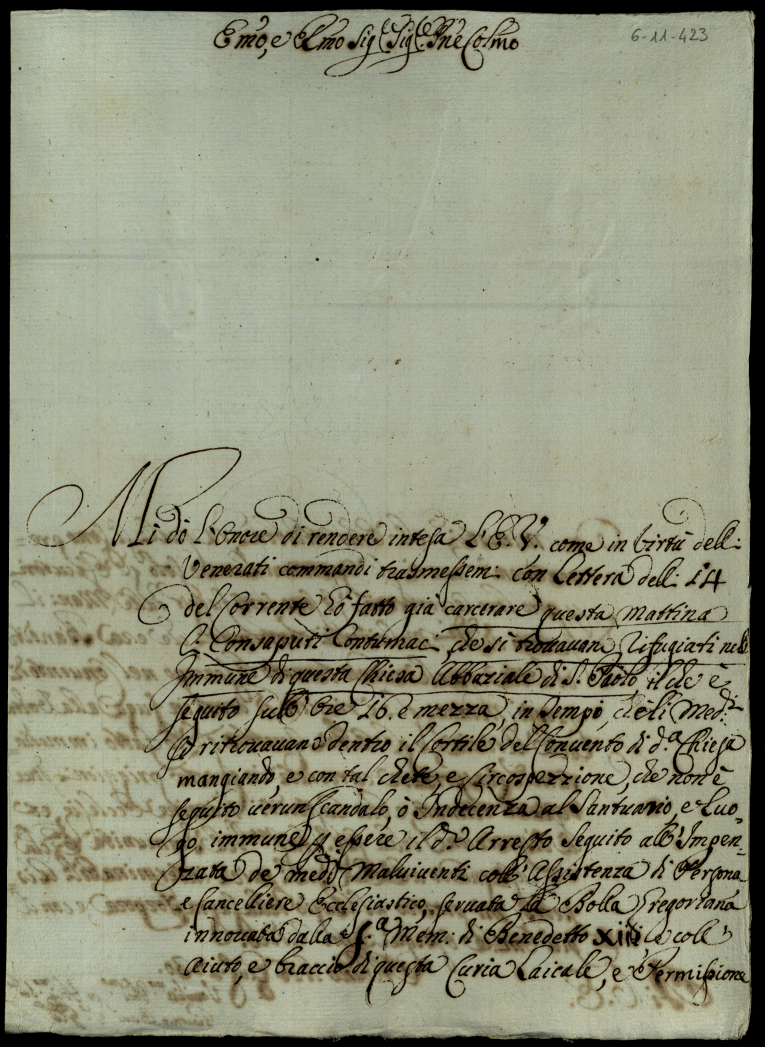 Emo, e Rmo Sig.r Sig.r Pne Colmo
6-11-423
Mi dò l'Onore di rendere intesa l'E.V. come in virtù dell:
Venerati commandi trasmessem: con Lettera dell: 14
del Corrente hò fatto già carcerare questa mattina
li Consaputi Contumac: che si trovavano Rifugiati nell'
Immune di questa Chiesa Abbaziale di S. Paolo, il che è
seguito sull'ore 16. e mezza, in tempo, che li Med:i
si ritrovavano dentro il Cortile del Convento di d.a Chiesa
mangiando, e con tal chete, e Circospezzione, che non è
seguito verun scandalo, ò Indecenza al Santuario, e Luo-
go immune, p essere il d.o Arresto seguito all'Impen-
zata de' med:i Malviventi coll'Assistenza di Persona
e Cancelliere Ecclesiastico, servata la Bolla Gregoriana
innovata dalla S.a Mem: di Benedetto XIII, e coll'
Aiuto, e braccio di questa Curia Laicale, e Permissione